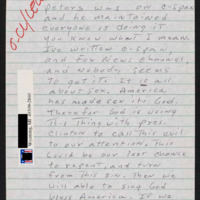 Peters was on C-Span
and he maintained
everyone is doing it
you know what I mean.
I've written C-Span,
and Fox News Channel,
and nobody seems
to get it. It is all
about sex. America
has made sex its God.
Therefor God is using
this thing with Pres.
Clinton to call this evil
to our attention. This
could be our last chance
to repent, and turn
from this sin. Then we
will able to sing God
bless America. If we